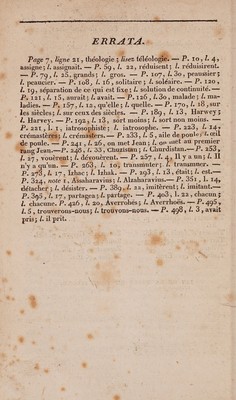 ERRATA.
Page 7, ligne 21, théologie; lisez téléologie. — P. 10, l. 4,
assigne; l. assignait. — P. 59, l. 22, réduisent; l. réduisirent.
— P. 79, l. 25, grands; l. gros. — P. 107, l. 30, peaussier;
l. peaucier. — P. 108, l. 16, solitaire; l. soléaire. — P. 120,
l. 19, séparation de ce qui est fixe; l. solution de continuité. —
P. 121, l. 15, aurait; l. avait. — P. 126, l. 30, malade; l. ma-
ladies. — P. 157, l. 12, qu'elle; l. quelle. — P. 170, l. 18, sur
les siècles; l. sur ceux des siècles. — P. 189, l. 13, Harwey;
l. Harvey. — P. 192, l. 13, sert moins; l. sert non moins. —
P. 221, l. 1, iatrosophiste; l. iatrosophe. — P. 223, l. 14,
crémastères; l. crémasters. — P. 233, l. 5, aile de poule; l. œil
de poule. — P. 241, l. 26, on met Jean; l. on met au premier
rang Jean. — P. 248, l. 33, Chuzistan; l. Churdistan. — P. 253,
l. 27, vouèrent; l. dévouèrent. — P. 257, l. 4, Il y a un; l. Il
n'y a qu'un. — P. 263, l. 10, transmuter; l. transmuer. —
P. 273, l. 17, Izhac; l. Ishak. — P. 293, l. 13, était; l. est. —
P. 324, note 1, Alsaharavius; l. Alzaharavius. — P. 351, l. 14,
détacher; l. désister. — P. 389, l. 22, imitèrent; l. imitant. —
P. 395, l. 17, partagea; l. partage. — P. 403, l. 22, chacun;
l. chacune. P. 426, l. 20, Averrohës; l. Averrhoës. — P. 495,
l. 5, trouverons-nous; l. trouvons-nous. — P. 498, l. 3, avait
pris; l. il prit.